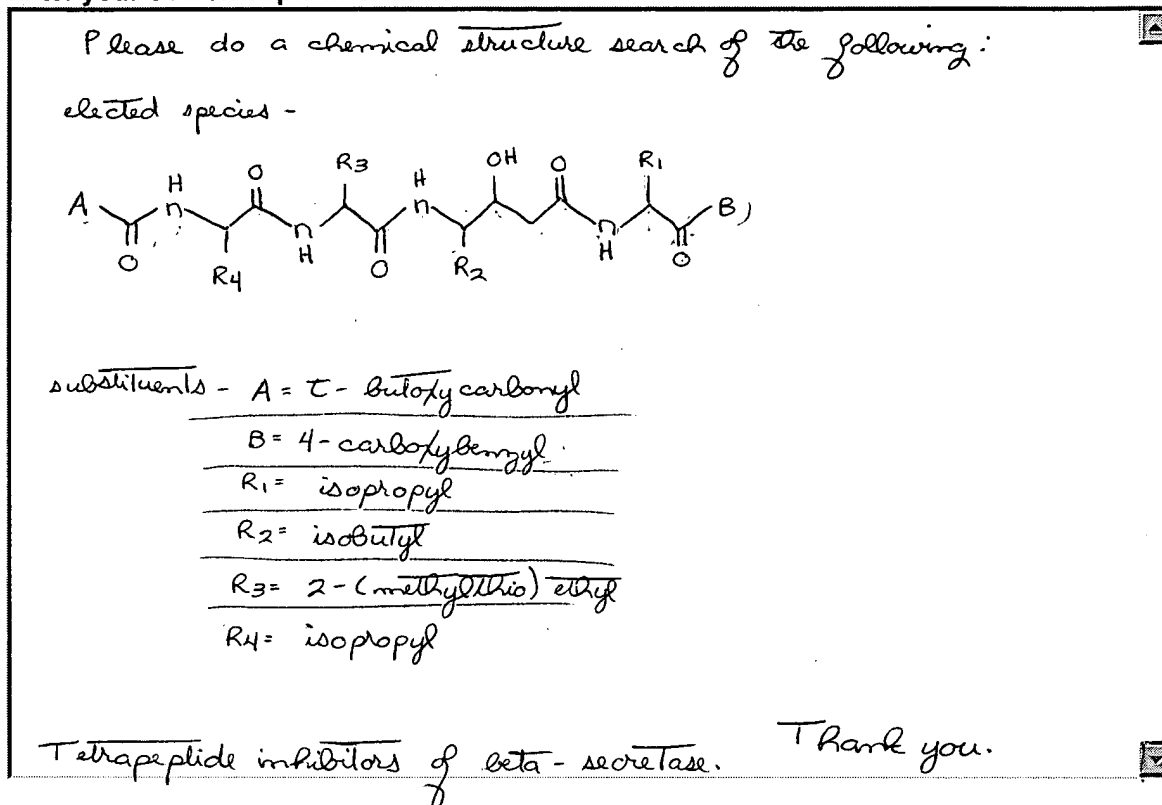 Please do a chemical structure search of the following:
elected species -
A H N O R3 H N OH O R1 B)
O R4 N H O R2 N H O
substituents - A = t-butoxycarbonyl
B = 4-carboxybenzyl.
R1 = isopropyl
R2 = isobutyl
R3 = 2-(methylthio)ethyl
R4 = isopropyl
Tetrapeptide inhibitors of beta-secretase. Thank you.